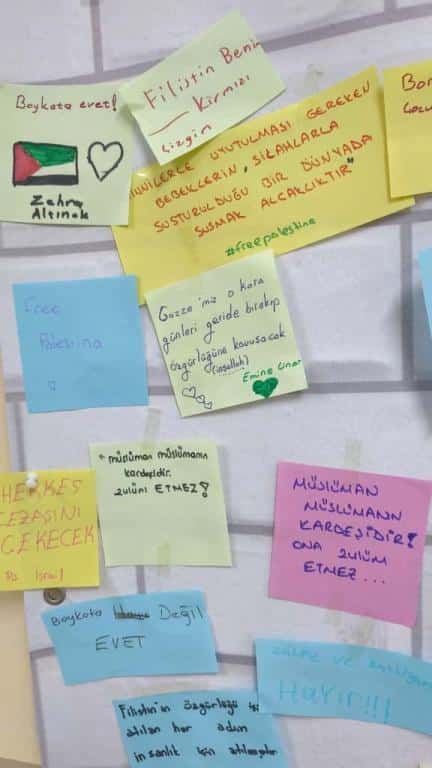 Boykota evet!
Zehra
Altınok
Filistin Benim
Kırmızı
çizgim
NİNNİLERLE UYUTULMASI GEREKEN
BEBEKLERİN, SİLAHLARLA
SUSTURULDUĞU BİR DÜNYADA
SUSMAK ALÇAKLIKTIR"
#freepalestine
Free
Palestina
Gazze'miz o kara
günleri geride bırakıp
özgürlüğüne kavuşacak
(inşallah)
Emine
HERKES
CEZASINI
ÇEKECEK
müslüman müslümanın
kardeşidir.
zulüm ETMEZ!
MÜSLÜMAN
MÜSLÜMANIN
KARDEŞİDİR!
ONA ZULÜM
ETMEZ...
Boykota Değil
EVET
ve
Hayır!!!
Filistin'in özgürlüğü için
atılan her adım
insanlık için atılmıştır